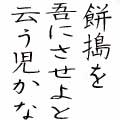 餅搗を
吾にさせよと
云う児かな